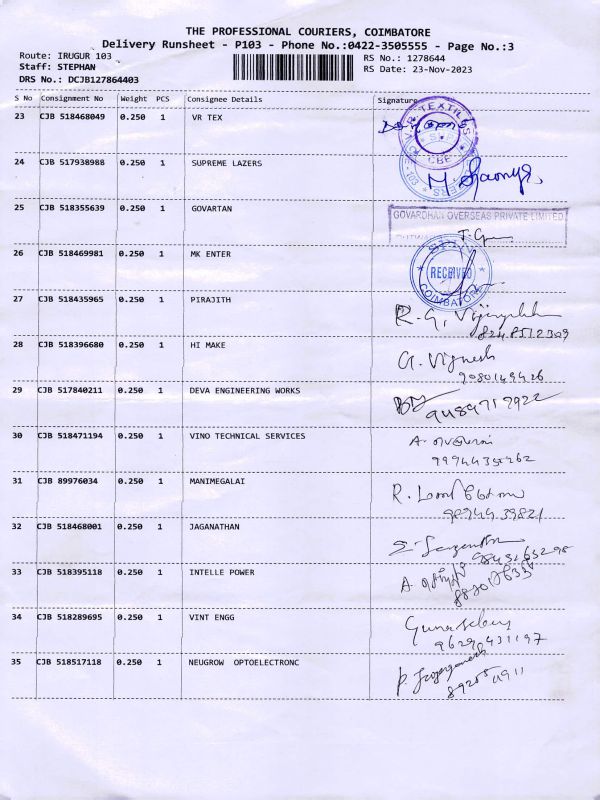 THE PROFESSIONAL COURIERS, COIMBATORE
Delivery Runsheet - P103 - Phone No.:0422-3505555 - Page No.:3
Route: IRUGUR 103
RS No.: 1278644
Staff: STEPHAN
RS Date: 23-Nov-2023
DRS No.: DCJB127864403
S No Consignment No Weight PCS Consignee Details Signature
23 CJB 518468049 0.250 1 VR TEX
24 CJB 517938988 0.250 1 SUPREME LAZERS
25 CJB 518355639 0.250 1 GOVARTAN
GOVARDHAN OVERSEAS PRIVATE LIMITED
26 CJB 518469981 0.250 1 MK ENTER
RECEIVED
COIMBATORE
27 CJB 518435965 0.250 1 PIRAJITH
R. G.
28 CJB 518396680 0.250 1 HI MAKE G. Vignesh
9080149426
29 CJB 517840211 0.250 1 DEVA ENGINEERING WORKS
30 CJB 518471194 0.250 1 VINO TECHNICAL SERVICES
31 CJB 89976034 0.250 1 MANIMEGALAI
9894439821
32 CJB 518468001 0.250 1 JAGANATHAN
9843263298
33 CJB 518395118 0.250 1 INTELLE POWER
34 CJB 518289695 0.250 1 VINT ENGG
9629431197
35 CJB 518517118 0.250 1 NEUGROW OPTOELECTRONC